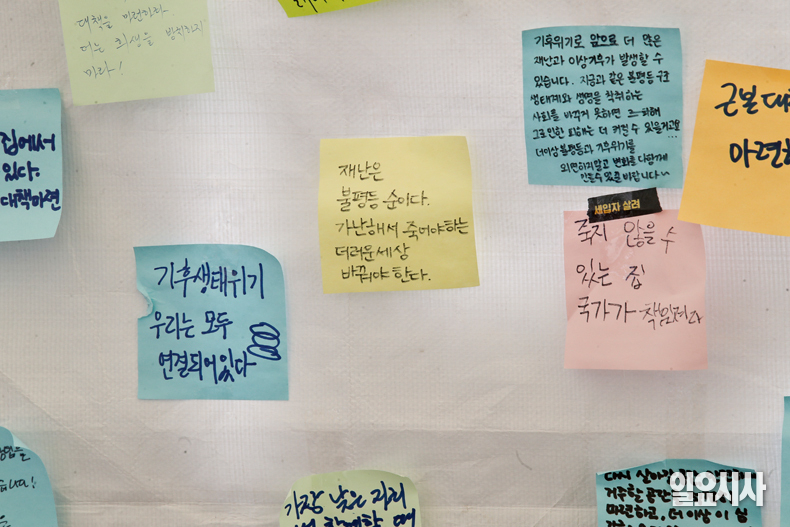 대책을 마련하라
더는 희생을 방치하지
마라!
집에서
있다.
대책마련
기후생태위기
우리는 모두
연결되어있다
재난은
불평등 순이다.
가난해서 죽어야하는
더러운세상
바꿔야한다.
기후위기로 앞으로 더 많은
재난과 이상기후가 발생할 수
있습니다. 지금과 같은 불평등 구조
생태계와 생명을 착취하는
사회를 바꾸지 못하면
그로인한 피해는 더 커질 수 있을거고요
더이상 불평등과 기후위기를
외면하지말고 변화를 다함께
만들수 있길 바랍니다~
근본대
마련하
세입자 살려
죽지 않을 수
있는 집
국가가 책임져라
가장 낮은 자리
거주할 공간
마련하고, 더 이상 이
일요시사